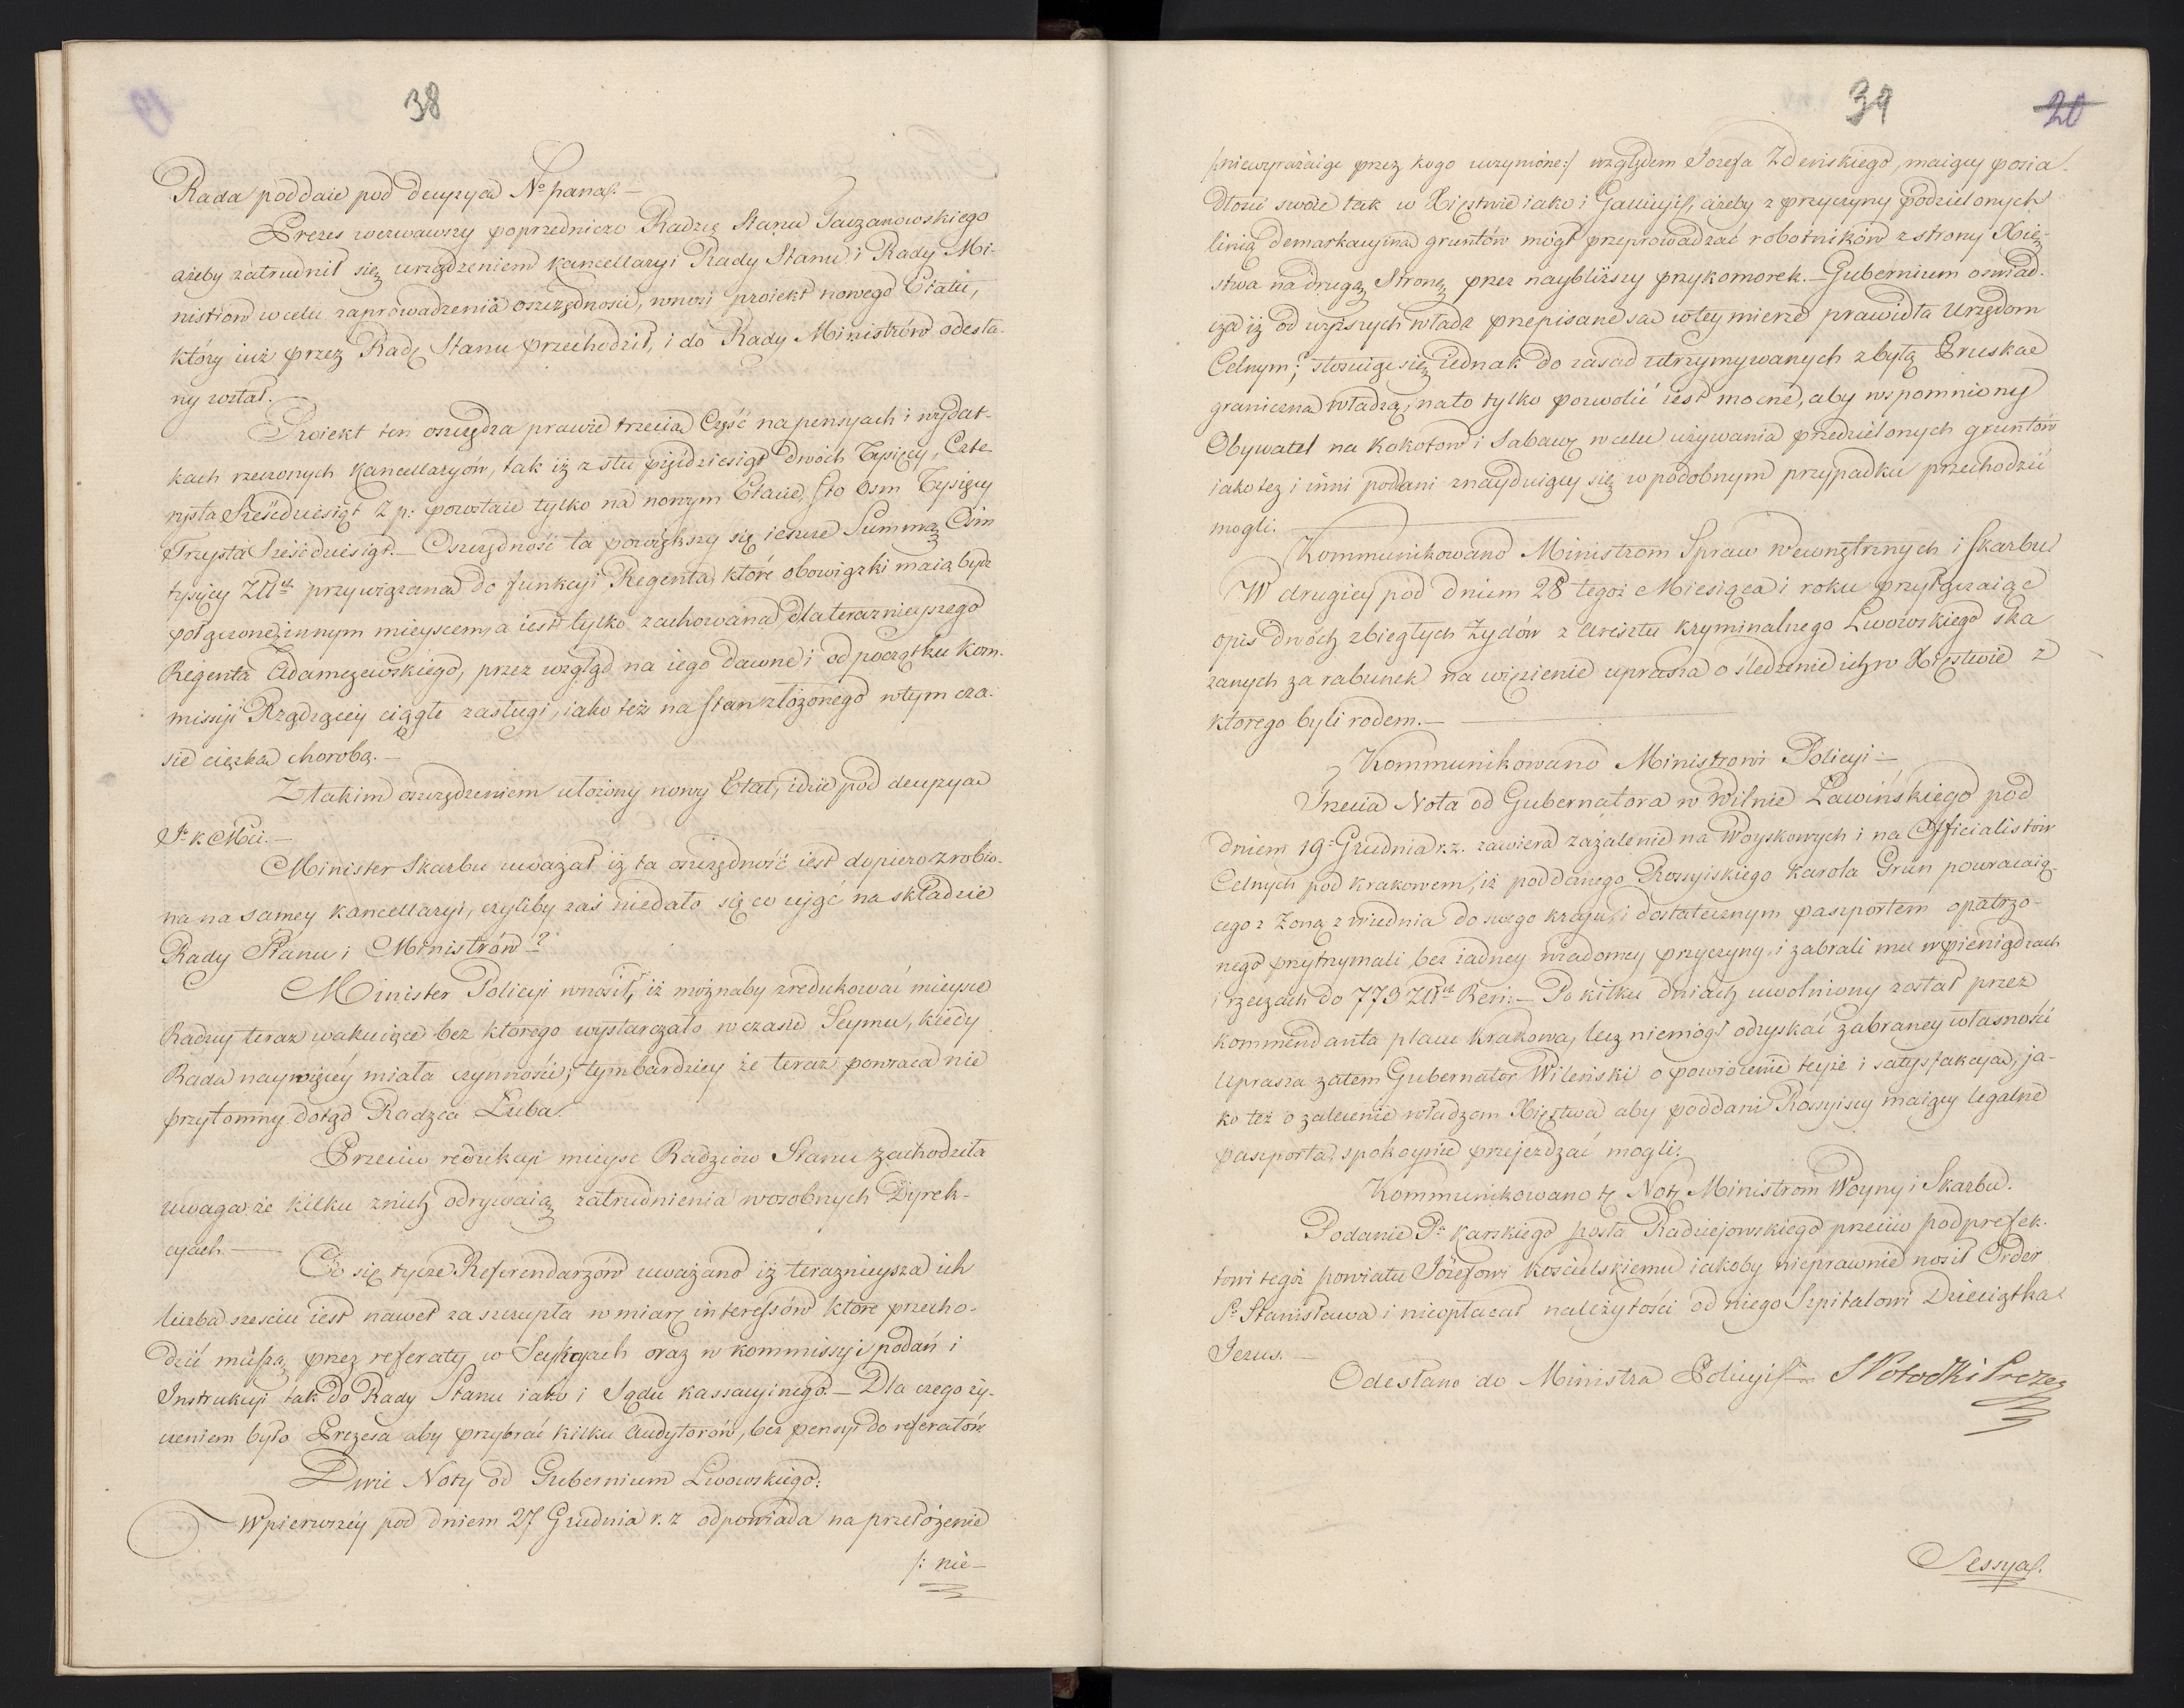 38
Rada poddaie pod decyzyą N° pana.—
Prezes wezwawszy poprzedniczo Radzcę Stanu Taczanowskiego
ażeby zatrudnił się urządzeniem Kancellaryi Rady Stanu i Rady Mi-
nistrów w celu zaprowadzenia oszczędności, wnosi proiekt nowego Etatu,
który iuż przez Radę Stanu przechodził, i do Rady Ministrów odesła-
ny został.—
Proiekt ten oszczędza prawie trzecią Część na pensyach i wydat-
kach rzeczonych Kancellaryów, tak iż z stu pięćdziesiąt dwóch Tysięcy, Czte-
rysta Sześćdziesiąt Z p: powstaie tylko na nowym Etacie, sto osm Tysięcy
Trzysta Sześćdziesiąt.— Oszczędność ta powiększy się ieszcze Summą Ośm
tysięcy Złł przywiązaną do funkcyi Regenta, które obowiązki maią bydź
połączone z innym mieyscem, a iest tylko zachowana dla teraznieyszego
Regenta Adamczewskiego, przez wzgląd na iego dawne i od początku Kom-
missyi Rządzącey ciągłe zasługi, iako też na stan złożonego w tym cza-
sie ciężką chorobą.—
Z takim oszczędzeniem ułożony nowy Etat, idzie pod decyzyą
J. K Mci.—
Minister Skarbu uważał iż ta oszczędność iest dopiero zrobio-
na na samey kancellaryi, czyliby zaś niedało się co ująć na składzie
Rady Stanu i Ministrów?
Minister Policyi wnosił, iż możnaby zredukować mieysce
Radzcy teraz wakuiące bez którego wystarczało w czasie Seymu, kiedy
Rada naywięcéy miała czynności; tymbardziey że teraz powraca nie
przytomny dotąd Radzca Łuba.
Przeciw redukcyi mieysc Radzców Stanu zachodziła
uwaga że kilku z nich odrywaią zatrudnienia w osobnych Dyrek-
cyach.—
Co się tycze Referendarzów uważano iż teraznieysza ich
liczba sześciu iest nawet za szczupła w miarę interessów które przecho-
dzić muszą przez referaty w Sekcyach oraz w kommissyi podań i
Instrukcyi tak do Rady Stanu iako i Sądu kassacyinego.— Dla czego ży-
czeniem było Prezesa aby przybrać kilku Audytorów, bez pensyi do referatów
Dwie Noty od Gubernium Lwowskiego:
W pierwszéy pod dniem 27 Grudnia r. z odpowiada na przełożenie
/: nie—
39
20
/:niewyrażaiąc przez kogo uczynione:/ względem Jozefa Zdeńskiego, maiącey posia-
dłości swoie tak w Xięstwie iako i Galicyi, ażeby z przyczyny podzielonych
linią demarkacyiną gruntów mógł przeprowadzać robotników z strony Xię-
stwa na drugą Stronę przez naybliższy przykomorek.— Gubernium oswiad-
cza iż od wyższych władz przepisane są w tey mierze prawidła Urzędom
Celnym; stosuiąc się iednak do zasad utrzymywanych z byłą Pruską
graniczną władzą, na to tylko pozwolić iest mocne, aby wspomniony
Obywatel na Kokotow i Sabawę w celu używania przedzielonych gruntów
iako też i inni poddani znayduiący się w podobnym przypadku przechodzić
mogli.
Kommunikowano Ministrom Spraw Wewnętrznych i skarbu
W drugiey pod dniem 28 tegoż Miesiąca i roku przyłączaiąc
opis dwóch zbiegłych Żydów z Aresztu Kryminalnego Lwowskiego ska
zanych za rabunek na więzienie uprasza o śledzenie ich w Xięstwie z
ktorego byli rodem.—
Kommunikowano Ministrowi Policyi—
Trzecia Nota od Gubernatora w Wilnie Ławińskiego pod
dniem 19 Grudnia r. z. zawiera zażalenie na Woyskowych i na Officialistów
Celnych pod Krakowem, iż poddanego Rossyiskiego Karola Grün powracaią-
cego z Żoną z Wiednia do swego kraju, i dostatecznym paszportem opatrzo-
nego przytrzymali bez żadney wiadomey przyczyny, i zabrali mu w pieniądzach
i rzeczach do 779 Złł Reń.— Po kilku dniach uwolniony został przez
kommendanta placu Krakowa, lecz niemógł odzyskać zabraney własności
Uprasza zatem Gubernator Wileński o powrócenie teyże i satysfakcyą, ja-
ko też o zalecenie władzom Xięstwa aby poddani Rossyiscy maiący legalne
paszporta, spokoynie przejezdzać mogli.
Kommunikowano tę Notę Ministrom Woyny i Skarbu.
Podanie P. Karskiego posła Radziejowskiego przeciw podprefek-
towi tegoż powiatu Józefowi Kościelskiemu iakoby nieprawnie nosił Order
S. Stanisława i nieopłacał należytości od niego Szpitalowi Dzieciątka
Jezus.—
Odesłano do Ministra Policyi.— S Potocki Prezes
Sessya.